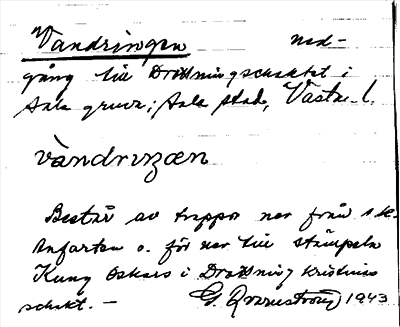 Vandringen ned-
gång till Drottningschaktet i
Sala gruva, Sala stad, Västm. l.
vàndrıŋæn
Består av trappor ner från
Infarten o. för ner till stämpeln
Kung Oskars i Drottning Kristinas
schakt. —
G. 1943